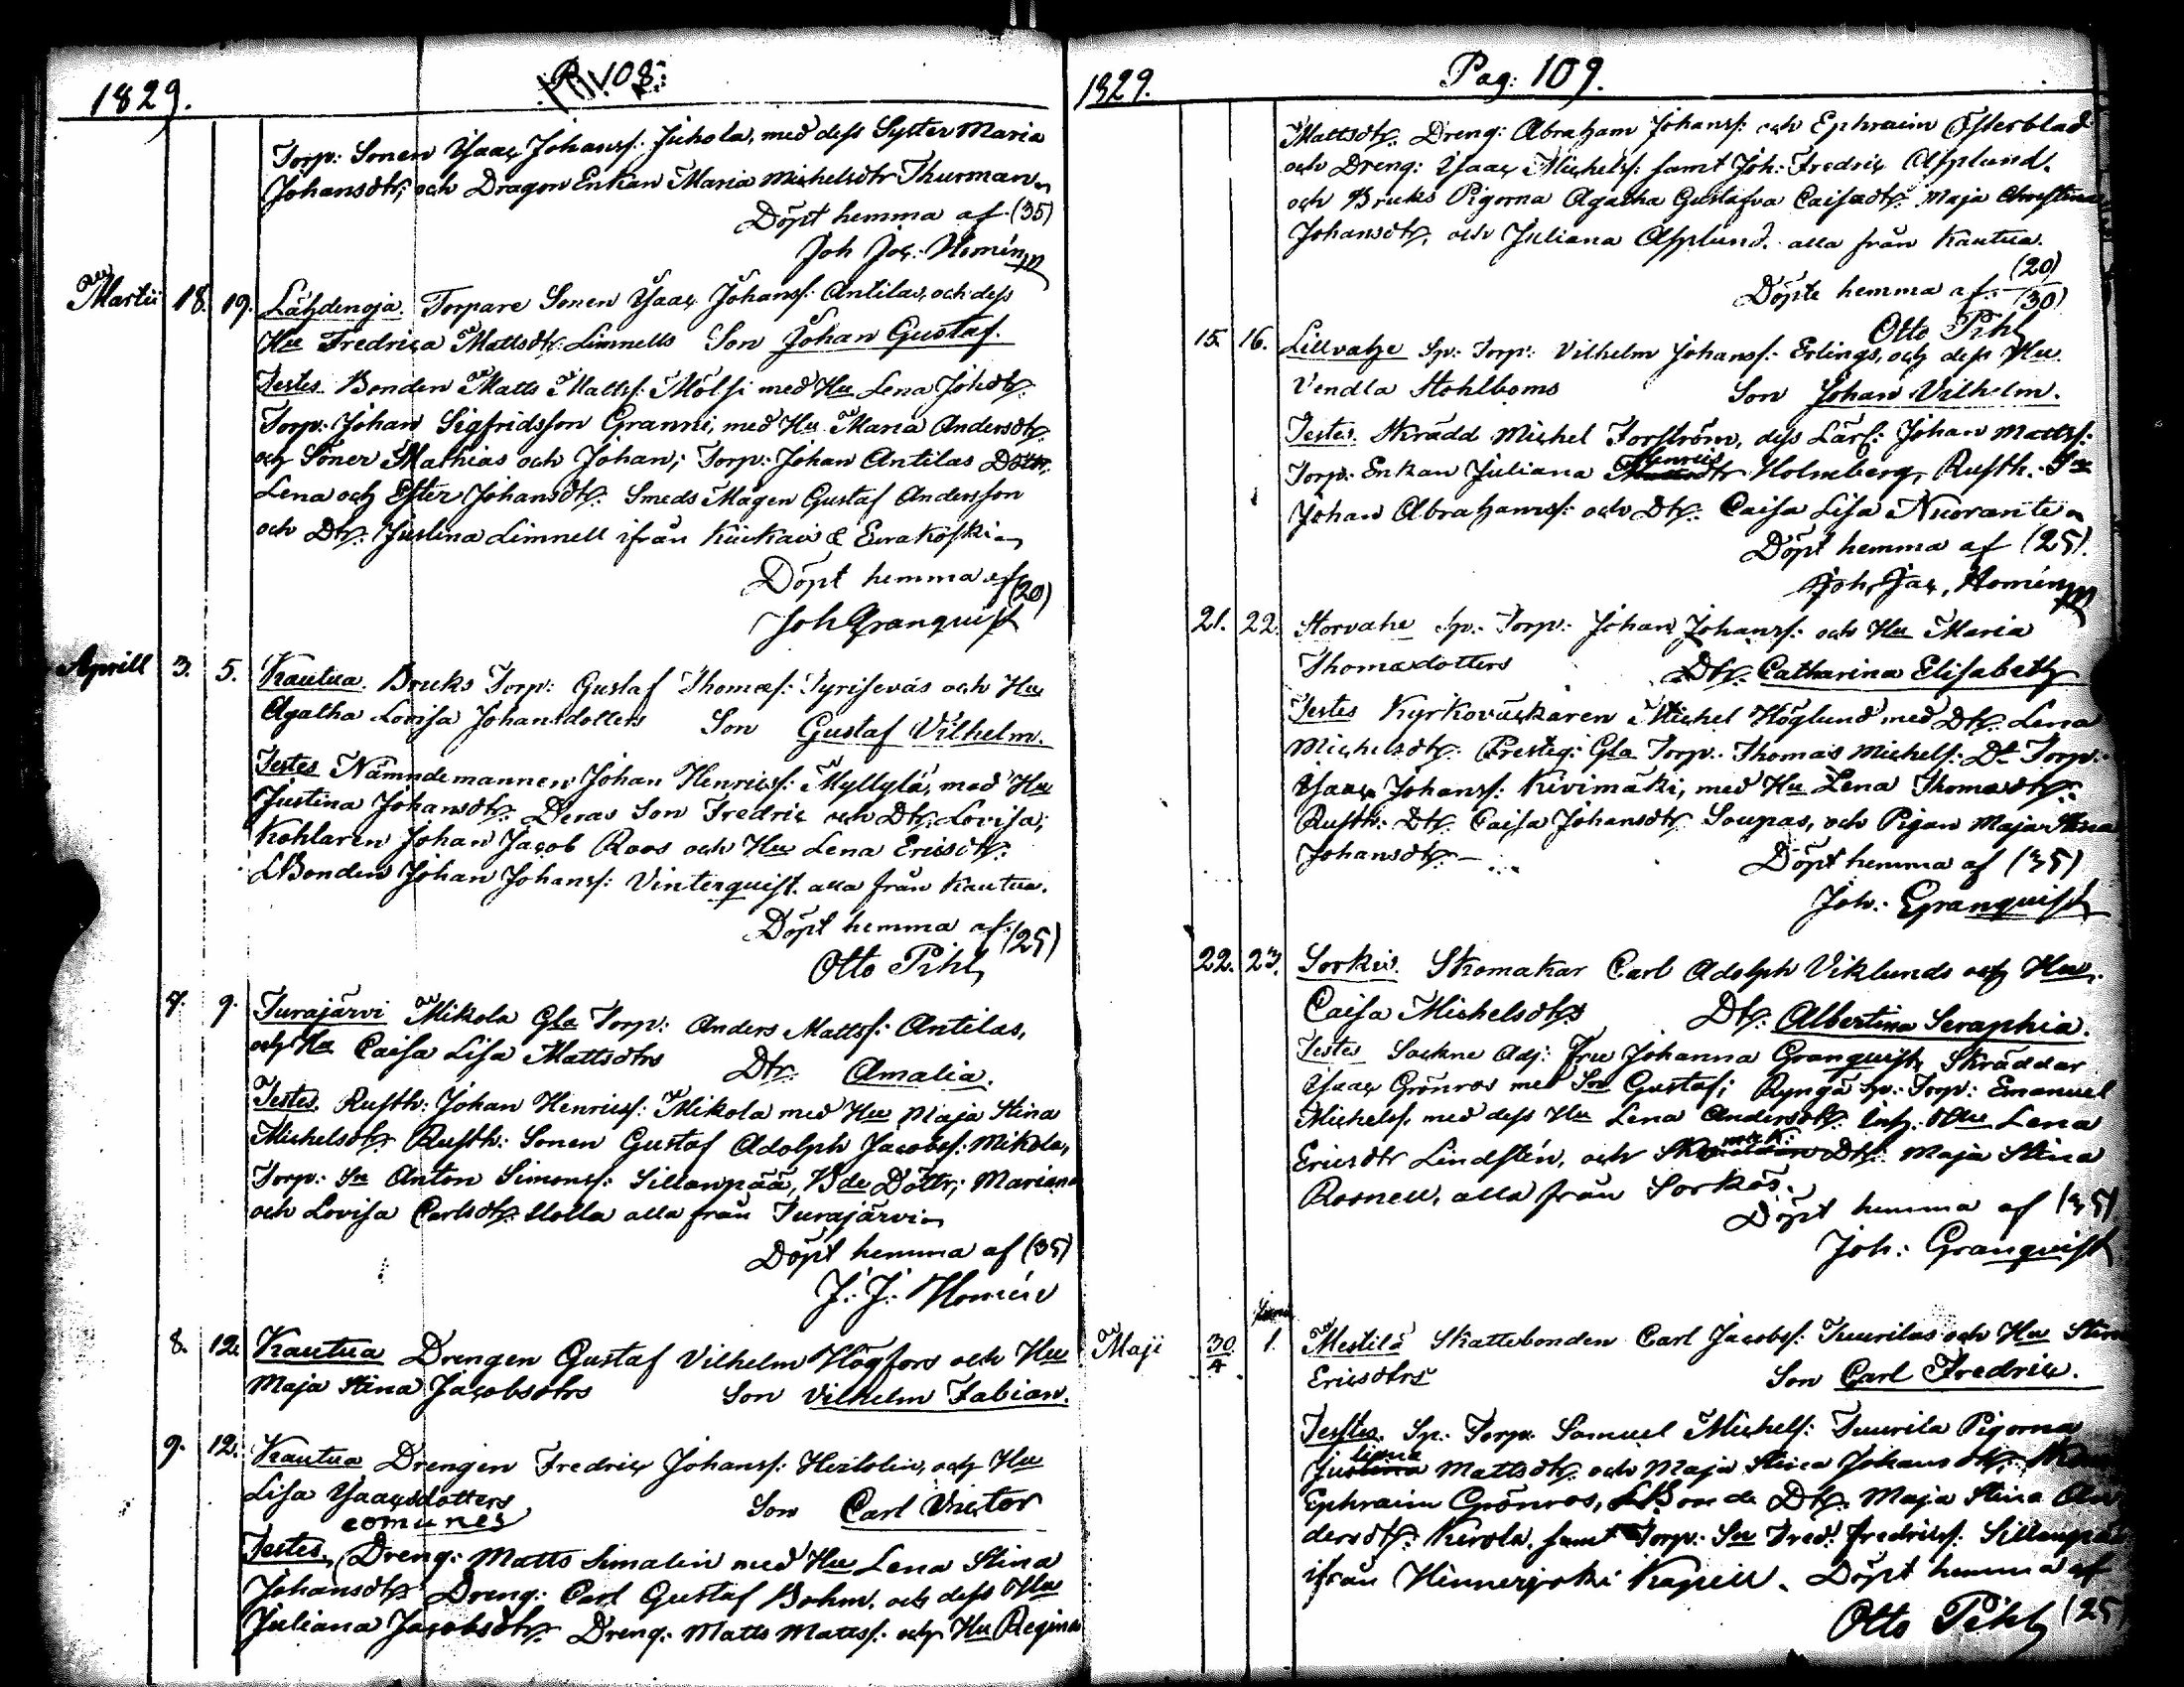 1829.
P. 108:
Torp: Sonen Isaac Johansf: Juhola, med dess Syster Maria
Johansdtr, och Dragon Enkan Maria Michelsdtr Thurman
Döpt hemma af (35)
Joh Jac: Homén
Martii 18. 19. Lähdenoja. Torpare Sonen Isaac Johansf: Antilas, och dess
Hu Fredrica Mattsdtr Limnells Son Johan Gustaf.
Testes Bonden Matts Mattsf: Mölsi med Hu Lena Johdtr.
Torp: Johan Sigfridsson Granni, med Hu Maria Andersdtr.
och Söner Mathias och Johan; Torp: Johan Antilas Döttr.
Lena och Ester Johansdtr. Smeds Mågen Gustaf Andersson
och Dtr. Justina Limnell ifrån Kiukais & Eurakoski
Döpt hemma af (20)
Joh Granquist
Aprill 3. 5. Kautua. Bruks Torp: Gustaf Thomasf: Tyriseväs och Hu
Agatha Lovisa Johansdotters Son Gustaf Vilhelm.
Testes Nämndemannen Johan Henricsf: Myllylä, med Hu
Justina Johansdtr. Deras Son Fredric och Dtr. Lovisa;
Kohlaren Johan Jacob Roos och Hu Lena Ericsdtr.
Bonden Johan Johansf: Vinterquist. alla från Kautua.
Döpt hemma af (25)
Otto Pihl
7. 9. Turajärvi Mikola Gla Torp: Anders Mattsf: Antilas,
och Hu Caisa Lisa Mattsdtrs Dtr. Amalia.
Testes. Rusth: Johan Henricsf: Mikola med Hu Maja Stina
Michelsdtr. Rusth: Sonen Gustaf Adolph Jacobsf: Mikola,
Torp: Sn Anton Simonsf: Sillanpää, Bde Döttr; Mariana
och Lovisa Carlsdtr. Uolla alla från Turajärvi
Döpt hemma af (35)
J: J: Homén
8. 12. Kautua Drengen Gustaf Vilhelm Högfors och Hu
Maja Stina Jacobsdtrs Son Vilhelm Fabian.
9. 12. Kautua Drengen Fredric Johansf: och Hu
Lisa Isaacsdotters Son Carl Victor
comunes
Testes, Dreng: Matts Simalin med Hu Lena Stina
Johansdtr. Dreng: Carl Gustaf Bohm. och dess Hu
Juliana Jacobsdtr. Dreng: Matts Mattsf: och Hu Regina
1829.
Pag: 109.
Mattsdtr. Dreng: Abraham Johansf: och Ephraim Österblad
och Dreng: Isaac Michelsf: samt Joh: Fredric Asplund.
och Bruks Pigorna Agatha Gustafva Caisadtr. Maja Christina
Johansdtr, och Juliana Asplund. alla från Kautua.
Döpte hemma af (20) (30)
Otto Pihl
15. 16. Lillvahe Sp: Torp: Vilhelm Johansf: Erlings, och dess Hu
Vendla Stohlboms Son Johan Vilhelm.
Testes. Skrädd Michel Forström, dess Lärf: Johan Mattsf:
Henrics
Torp: Enkan Juliana dtr Holmberg, Rusth. Sn
Johan Abrahamsf: och Dtr. Caisa Lisa Nuoranten
Döpt hemma af (25).
Joh. Jac, Homén
21. 22. Storvahe Sp: Torp: Johan Johansf: och Hu Maria
Thomasdotters Dtr. Catharina Elisabeth
Testes Kyrkoväcktaren Michel Höglund med Dtr. Lena
Michelsdtr. Presteg: Gla Torp: Thomas Michelsf: Do Torp:
Isaac Johansf: Kivimäki, med Hu Lena Thomasdtr.
Rusth: Dtr. Caisa Johansdtr Soupas, och Pigan Maja Stina
Johansdtr. Döpt hemma af (35)
Joh: Granquist
22. 23. Sorkis. Skomakar Carl Adolph Viklunds och Hu
Caisa Michelsdtrs Dtr. Albertina Seraphia.
Testes Sockne Adj: Fru Johanna Granquist, Skräddar
Isaac Grönros med Son Gustaf; Ryngä Sp: Torp: Emanuel
Michelsf. med dess Hu Lena Andersdtr. Inh: Hu Lena
Ericsdtr Lindstén, och Dtr. Maja Stina
Rosnell, alla från Sorkis.
Döpt hemma af (35)
Joh: Granquist
Maji 30/4 Junii 1. Mestilä Skattebonden Carl Jacobsf: Tuurilas och Hu Stina
Ericsdtrs Son Carl Fredric.
Testes. Sp. Torp. Samuel Michelsf: Tuurila Pigorna
Mattsdtr. och Maja Stina Johansdtr,
Ephraim Grönros, Bonde Dtr. Maja Stina An
dersdtr. Kerola, samt Torp: Sn Fred: Fredricsf: Sillanpää
ifrån Hinnerjoki Kapell. Döpt hemma af
Otto Pihl (25)